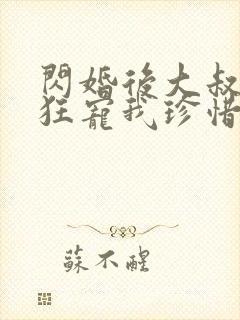 閃婚後大叔
狂寵我珍惜
蘇不醒